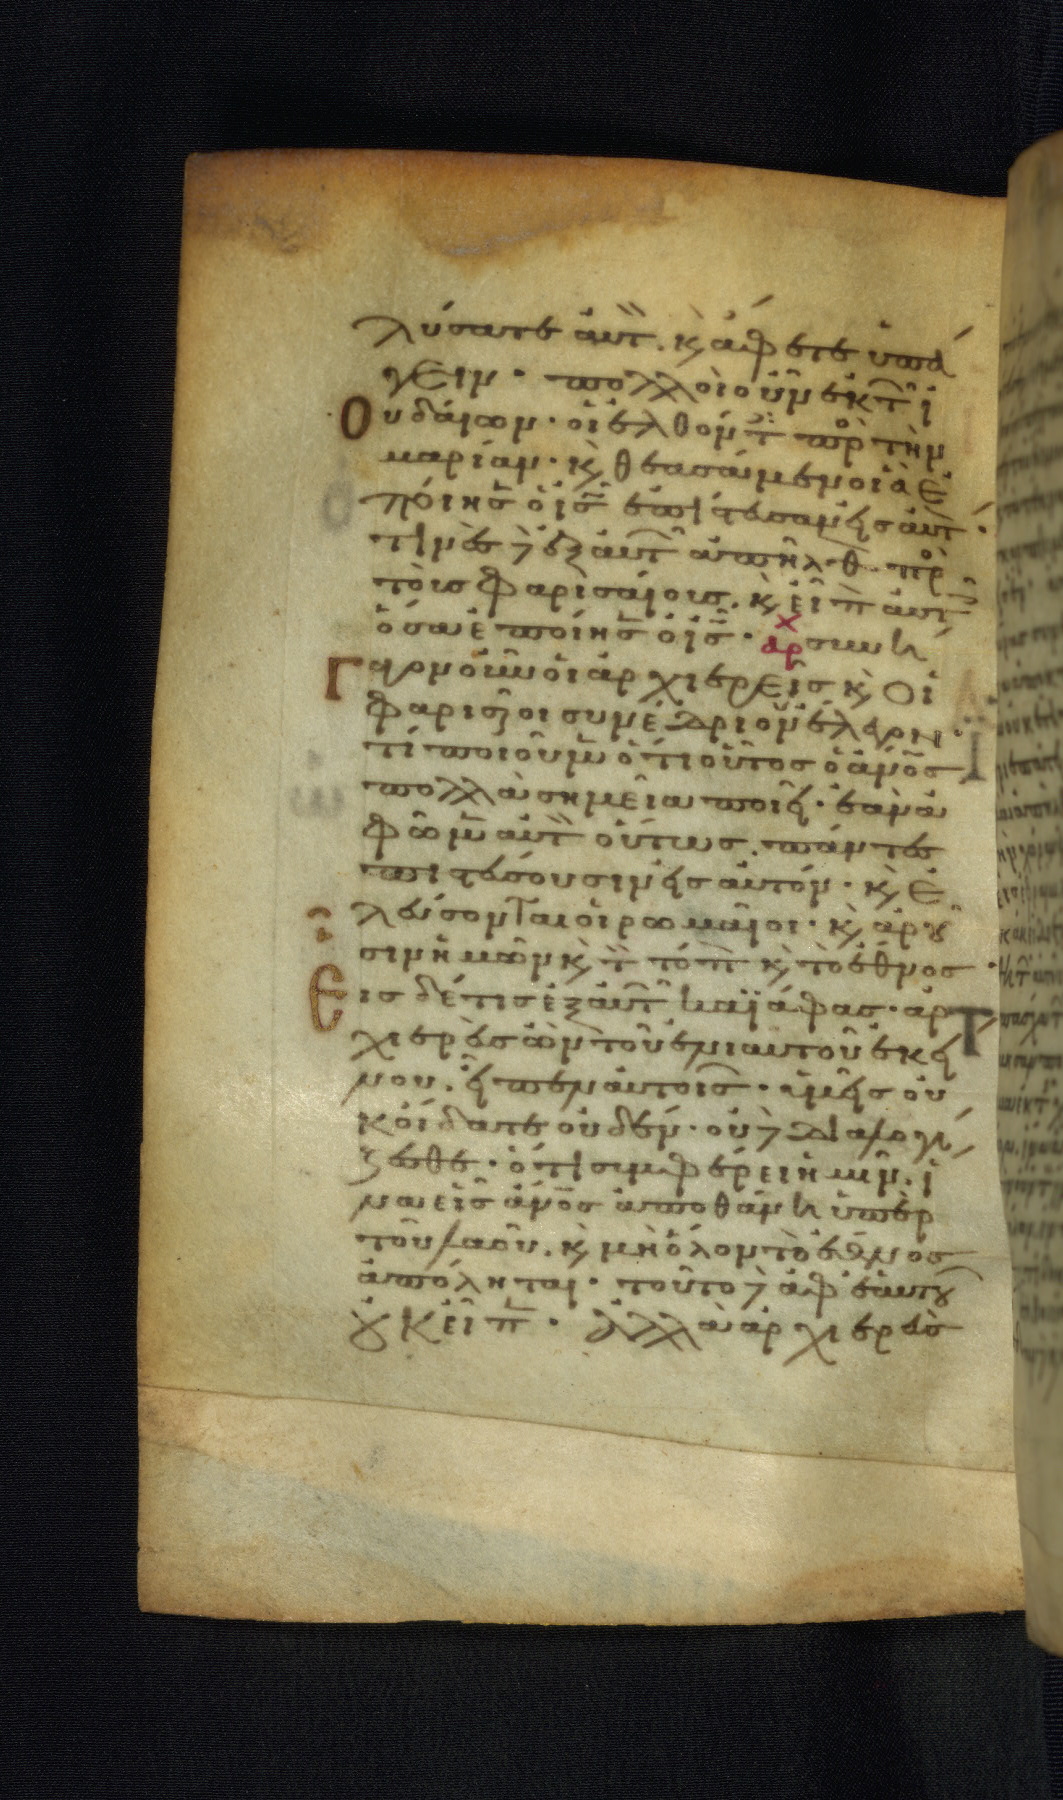 λύσατε αὐτ̀. κ̀ ἄφετε ὑπά
γειν· πολλοὶ οὖν ἐκ τ̑ ἰ
Ουδαίων· οἱ ἐλθόντ πρ̀ τὴν
μαριάμ· κ̀ θεασάμενοι ἃ ἐ
ποίησ ὁ ις̄ ἐπίστευσαν εἰς αὐτ·
τινὲς δ ἐξ αὐτ̑ ἀπῆλθ πρ̀
τοὺς φαρισαίους. κ̀ εἶπ αὐτ
ὅσα ἐποίησ ὁ ις̄· αρχ συνή
Γαγον οὖν οἱ ἀρχιερεῖς κ̀ οἱ
φαρισαῖοι συνέδριον κ̀ ἔλεγον·
τί ποιοῦμ ὅτι οὗτος ὁ ἄνος
πολλὰ σημεῖα ποιεῖ· ἐὰν ἀ
φῶμ αὐτ̀ οὕτως. πάντες
πιστεύσουσιν εἰς αὐτόν· κ̀ ἐ
λεύσονται οἱ ρωμαῖοι· κ̀ ἀροῦ
σιν ἡμῶν κ̀ τ̀ τόπ κ̀ τὸ ἔθνος·
Εις δέ τις ἐξ αὐτ̑ καϊάφας· ἀρ
χιερεὺς ὢν τοῦ ἐνιαυτοῦ ἐκεί
νου. εἶπεν αὐτοῖς· ὑμεῖς οὐ
κ οἴδατε οὐδέν· οὐδὲ διαλογί
ζεσθε· ὅτι συμφέρει ἡμῖν. ἵ
να εἷς ἄνος ἀποθάνη ὑπὲρ
τοῦ λαοῦ. κ̀ μὴ ὅλον τὸ ἔθνος
ἀπόληται· τοῦτο δ ἀφ ἑαυτοῦ
οὐκ εἶπ· ἀλλὰ ἀρχιερεὺς